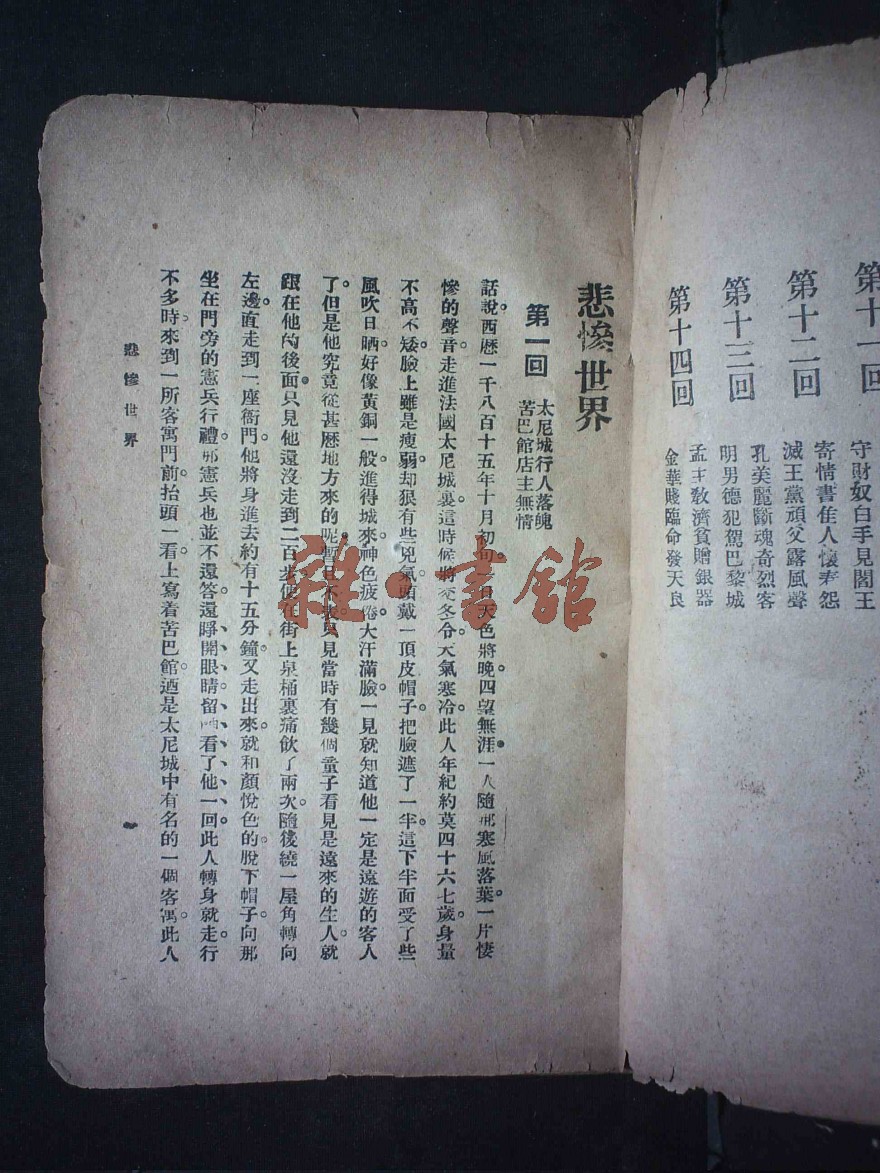 第十一回
守財奴白手見閻王
第十二回
寄情書佳人懷春怨
滅王黨頑父露風聲
第十三回
孔美麗斷魂奇烈客
明男德犯駕巴黎城
第十四回
孟主敎濟貧贈銀器
金華賤臨命發天良
悲慘世界
第一回
太尼城行人落魄
苦巴館店主無情
話說。西曆一千八百十五年十月初旬一日天色將晚。四望無涯。一人隨那寒風落葉。一片悽
慘的聲音走進法國太尼城裏。這時候將交冬令。天氣寒冷。此人年紀約莫四十六七歲。身量
不高不矮。臉上雖是瘦弱却狠有些兇氣。頭戴一頂皮帽子。把臉遮了一半。這下半面受了些
風吹日晒。好像黃銅一般。進得城來。神色疲倦。大汗滿臉。一見就知道他一定是遠遊的客人
了。但是他究竟從甚麽地方來的呢。暫且不表。只見當時有幾個童子看見是遠來的生人。就
跟在他的後面。只見他還沒走到二百步便在街上泉桶裏痛飲了兩次。隨後繞一屋角轉向
左邊。直走到一座衙門。他將身進去。約有十五分鐘。又走出來。就和顏悅色的脫下帽子。向那
坐在門旁的憲兵行禮。那憲兵也並不還答。還睜開眼睛留神看了他一回。此人轉身就走。行
不多時。來到一所客寓門前。抬頭一看。上寫着苦巴館。迺是太尼城中有名的一個客寓。此人
悲慘世界
雜·書館